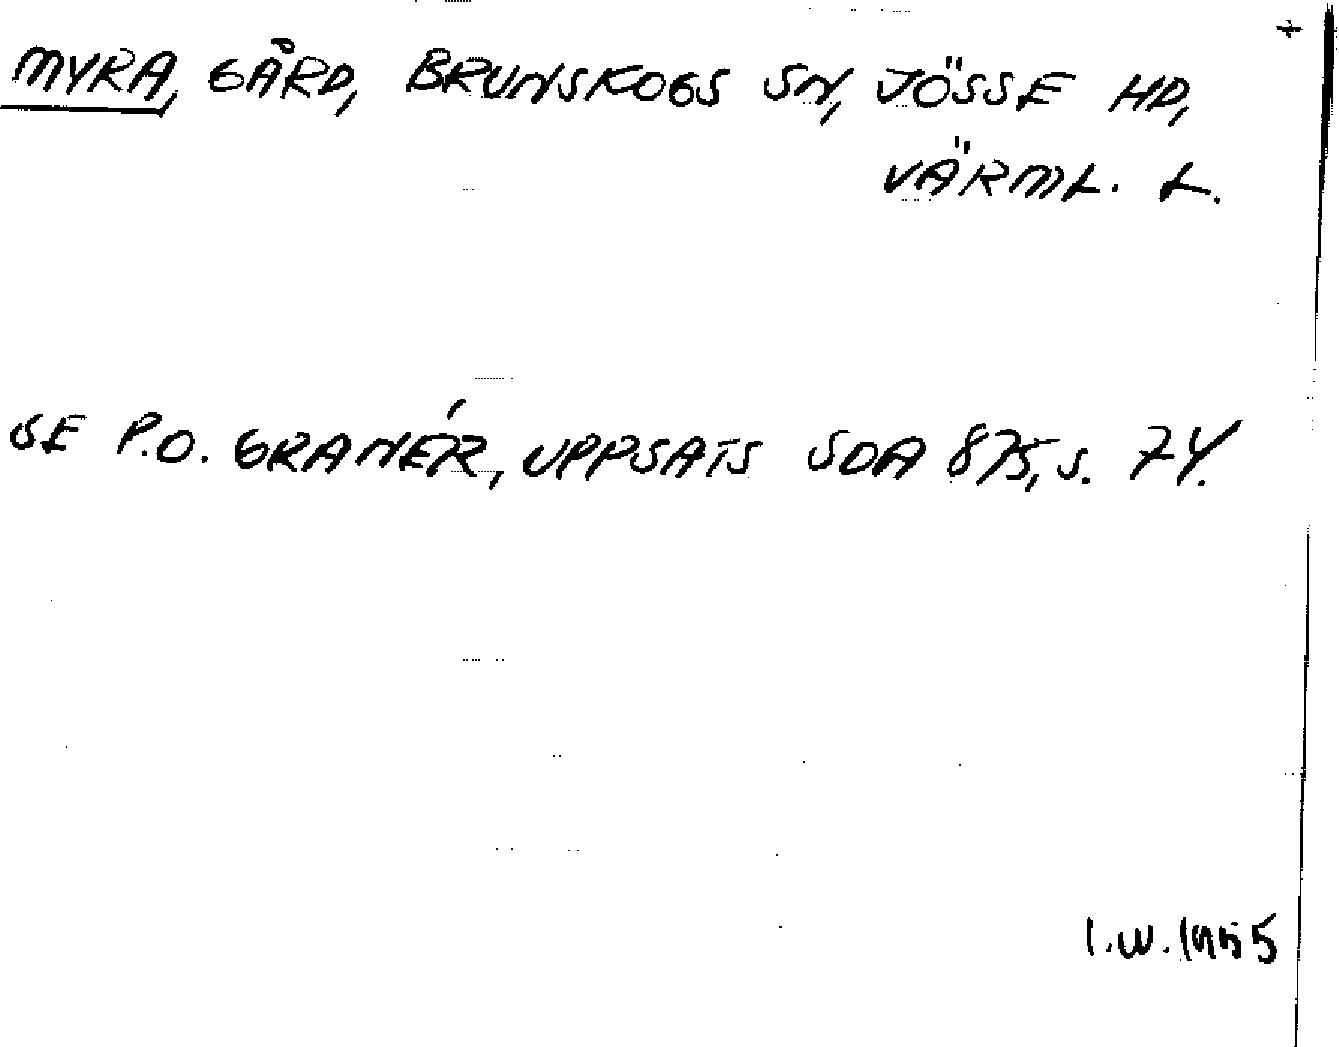 +
MYRA, GÅRD, BRUNSKOGS SN, JÖSSE HD,
VÄRML. L.
SE P.O. GRANÉR, UPPSATS SOA 875, S. 74.
I.W. 1955